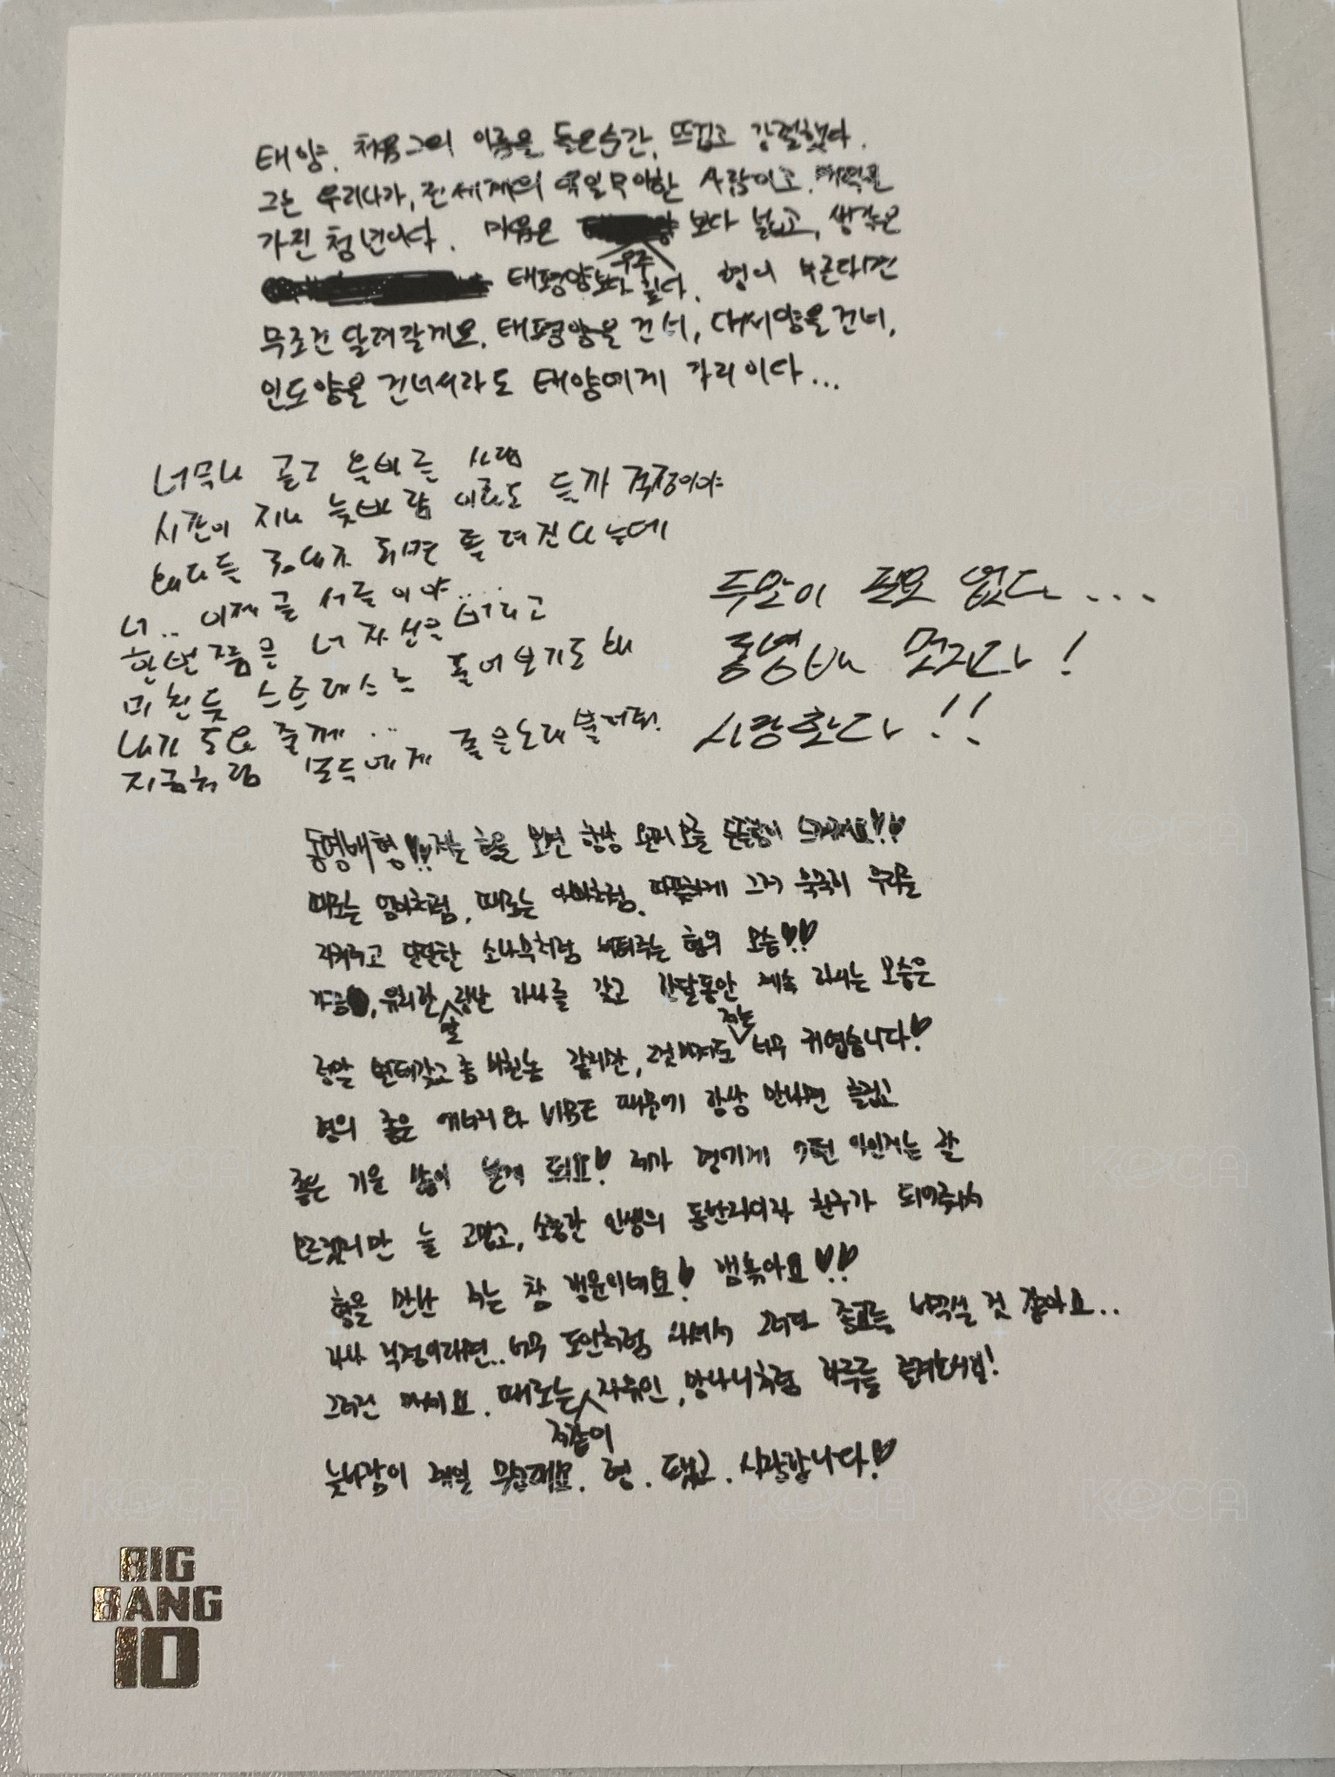 태양. 처음 그의 이름을 들은순간, 뜨겁고 강렬했다.
그는 우리나라, 전세계의 유일무이한 사람이고, 매력을
가진 청년이다. 마음은 보다 넓고, 생각은
우주
태평양보다 깊다. 형이 부른다면
무조건 달려갈께요. 태평양을 건너, 대서양을 건너,
인도양을 건너서라도 태양에게 가리이다...
너무나 곧고 올바른 사람
시간이 지나 늦바람 이라도 들까 걱정이야
남자들 되면 틀려진다는데
너.. 이제 곧 서른이야....
한번쯤은 너 자신을 버리고
미친듯 스트레스도 풀어보기도 해
내가 도와 줄께...
지금처럼 모두에게 좋은노래 불러줘.
두말이 필요 없다...
동영배 멋지다!
사랑한다!!
동영배형!! 저는 형을 보면 항상 왠지모를 든든함이 느껴져요!!
때로는 엄마처럼, 때로는 아빠처럼, 따뜻하게 그저 묵묵히 우리를
지켜주고 단단한 소나무처럼 버텨주는 형의 모습!!
가끔, 유치한 장난 하나를 갖고 한달동안 계속 하시는 모습은
말
저는
정말 변태같고 좀 미친놈 같지만, 그것마저도 너무 귀엽습니다!
형의 좋은 에너지와 VIBE 때문에 항상 만나면 즐겁고
좋은 기운 많이 받게 되요! 제가 형에게 어떤 의미인지는 잘
모르겠지만 늘 고맙고, 소중한 인생의 동반자이자 친구가 되어줘서
형을 만난 저는 참 행운이네요! 햄볶아요!!
하나 걱정이라면.. 너무 도인처럼 사셔서 그러다 종교를 바꾸실 것 같아요..
그러진 마세요. 때로는 자유인, 망나니처럼 하루를 즐겨보시길!
저같이
늦바람이 제일 무섭대요. 형. 고맙고. 사랑합니다!
BIG
BANG
10
KOCA KOCA KOCA KOCA